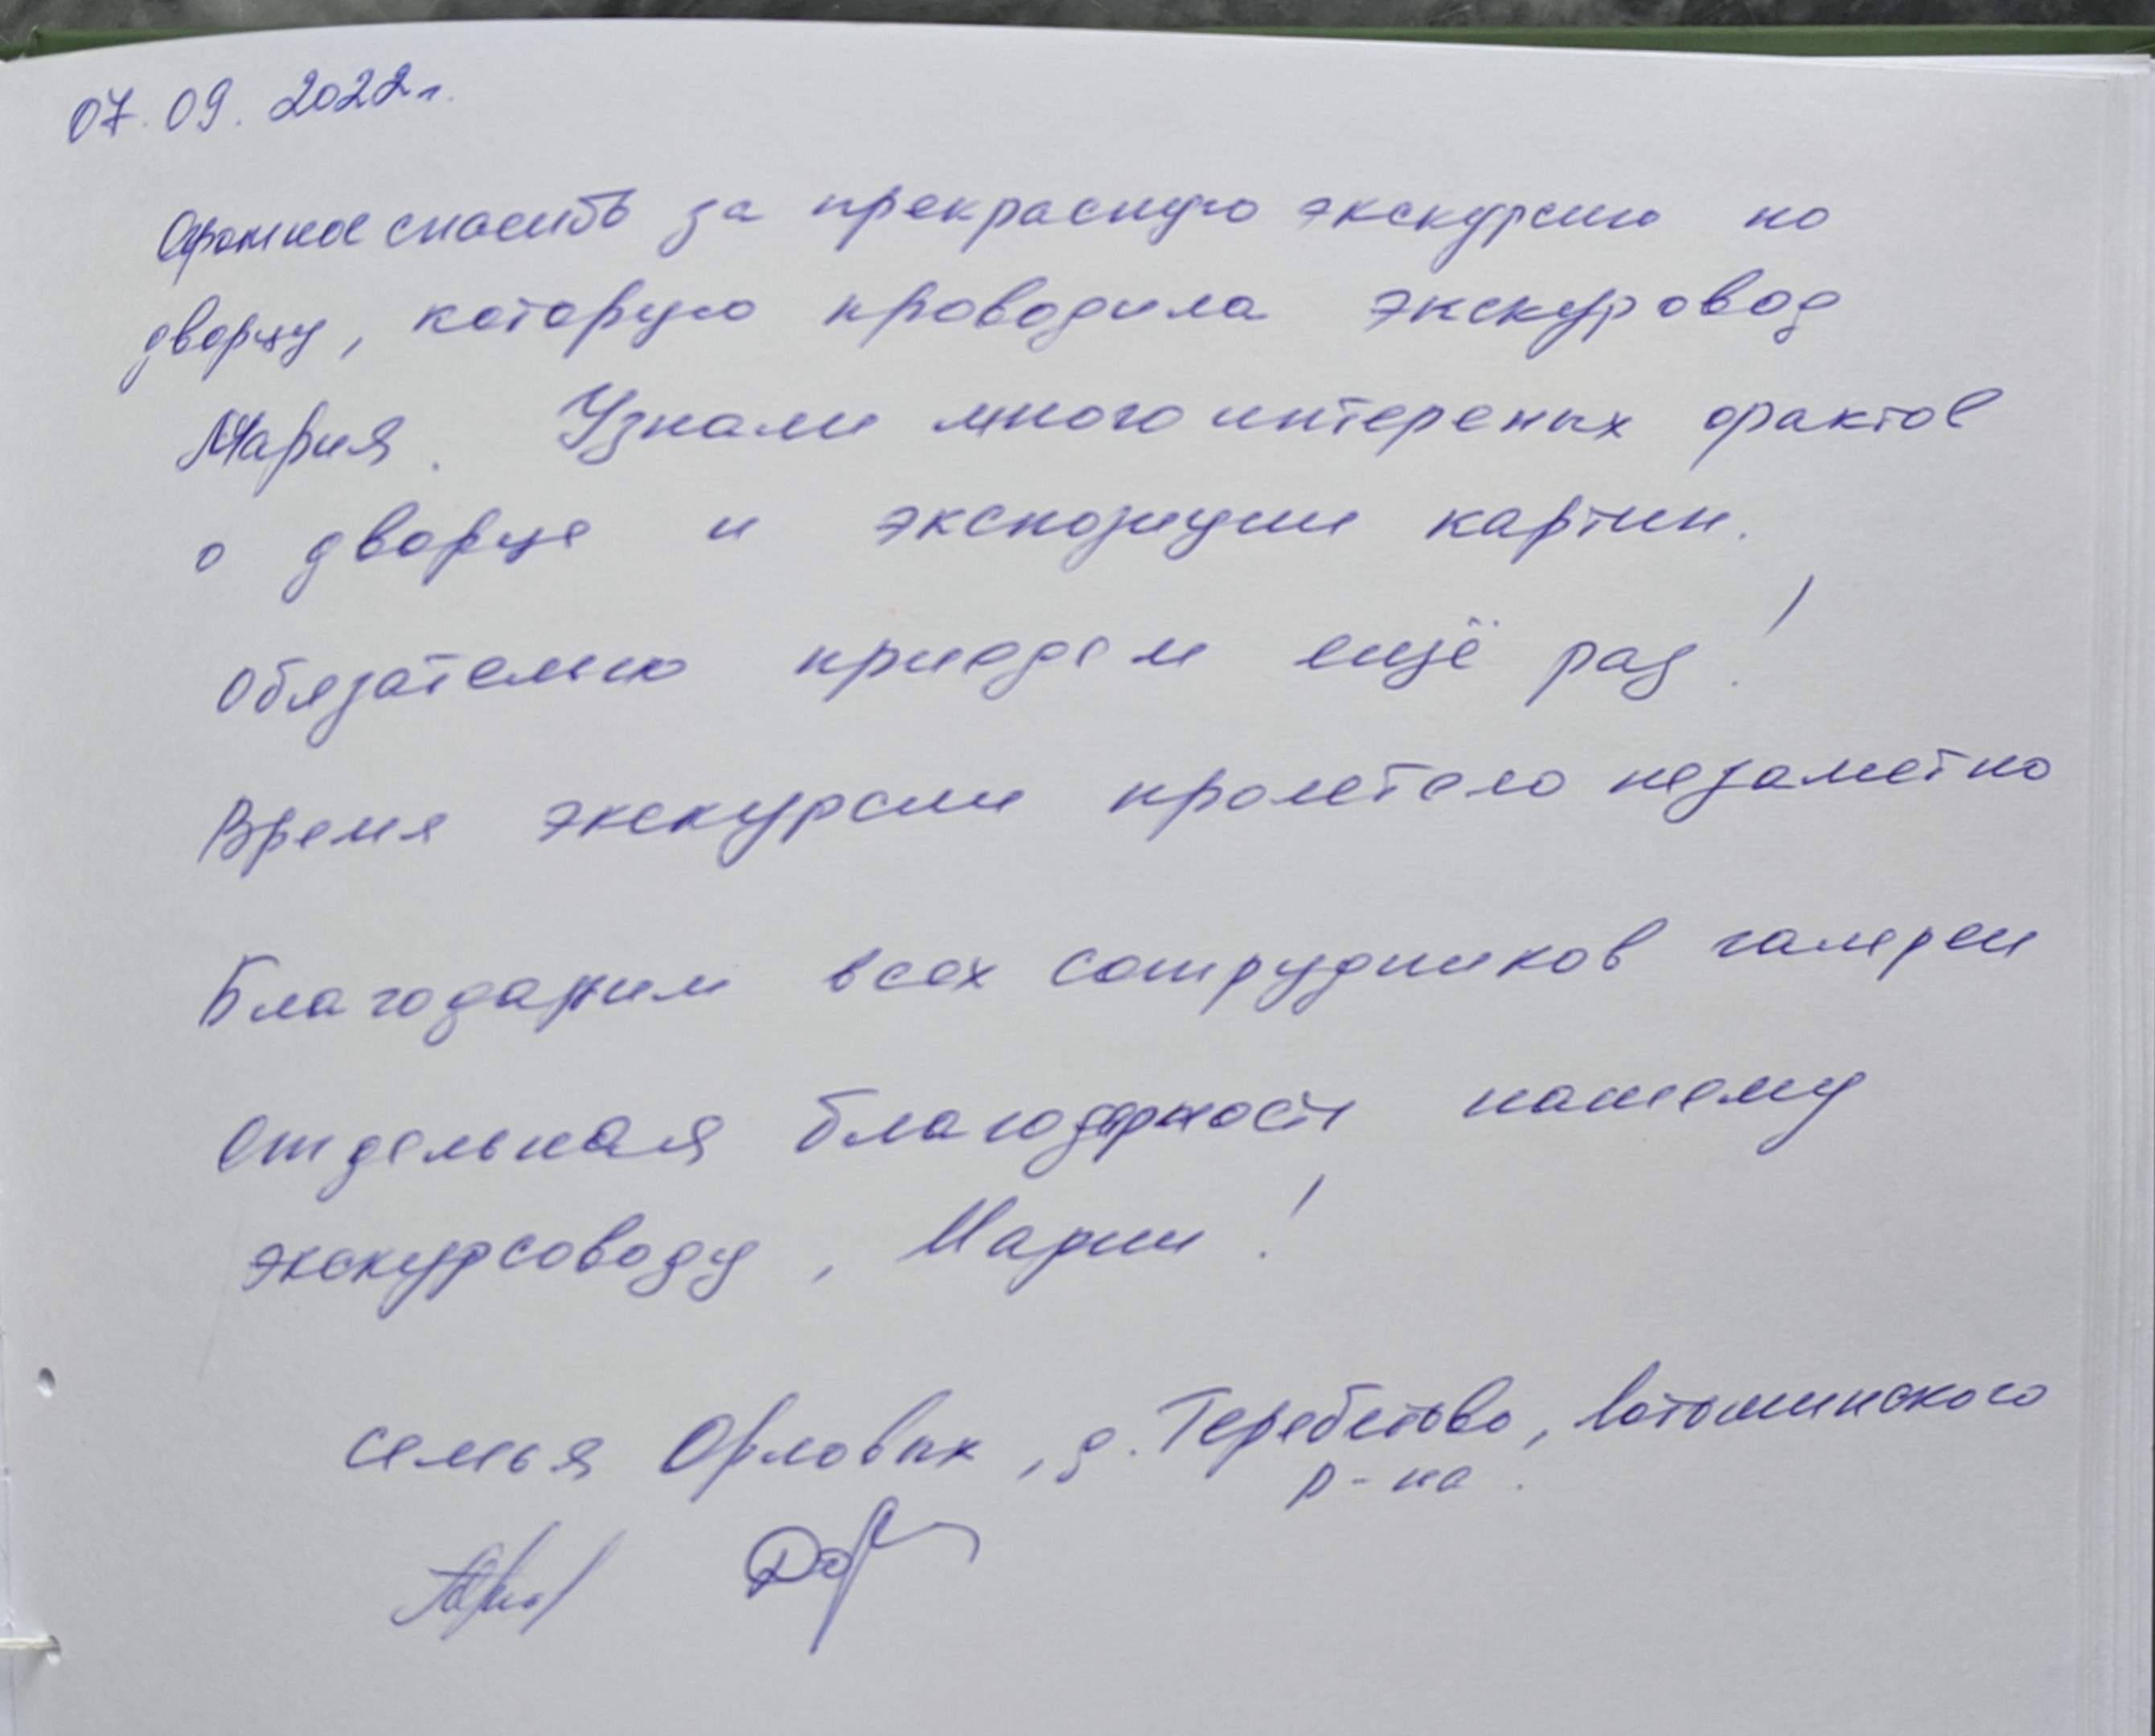 07.09.2022г.
Огромное спасибо за прекрасную экскурсию по
дворцу, которую проводила экскуровод
Мария. Узнали много интереных фактов
о дворце и экспозиции картин.
Обязательно приедем ещё раз!
Время экскурсии пролетело незаметно
Благодарим всех сотрудников галереи
Отдельная благодарность нашему
экскурсоводу, Марии!
семья Орловых, д. Теребетово, Лотошинского
р-на.